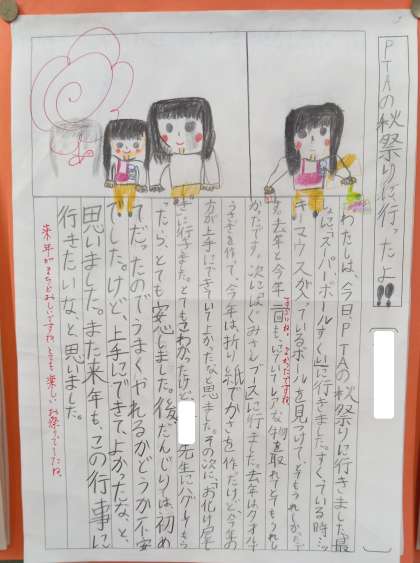 PTAの秋祭りに行ったよ!!
わたしは、今日PTAの秋祭りに行きました。最
なに「スーパーボールすくいに行きました。すくている時ミッ
キーマウスが入っているボールを見つけて、とてもうれしかたで
す。去年と今年二回も
てレアな物を取れてとてもうれし
かたです。次に
ぐみさんブースに行ました。去年は
うさぎを作て、今年は折り紙でかさを作たけど、今年の
方が上手にできていてよかたなと思ました。その次に「お化け屋しき
に行きました。とてもこわかったけど
先生に
もら
ったら、とても安心しました。後、だんじりは、初め
てだったのでうまくやれるかどうか不安
でした。けど、上手にできて、よかったな、と、
思いました。また来年も、この行事に
行きたいな、と思いました。
すごいね。よかったですね。
来年がまちどおしいですね。とても楽しいお祭りでしたね。